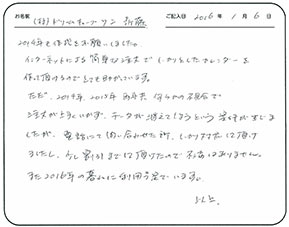 お名前 (株)ドリームチューブマン 斎藤 ご記入日 2016年1月6日
2014年も作成をお願いしました。
インターネットによる簡単な注文で しっかりとしたカレンダーを
作って頂けるのでとても助かっています。
ただ、2014年、2015年 両年共 何らかの不具合で
注文が上手くいかず、データが消えてしまうという事が生じまし
たが、電話にて問い合わせた所、しっかり対応して頂け
ましたし、少し割引までして頂けたので 不満はありません。
また2016年の暮れに利用予定でいます。
以上